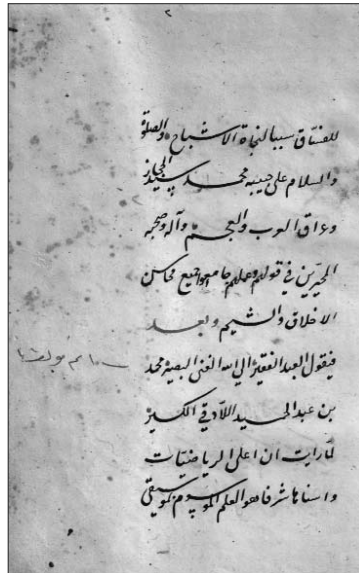 ٢
للعشاق سببا لنجاة الاشباح والصلوة
والسلام على حبيبه محمد سيد الحجاز
وعراق العرب والعجم وآله وصحبه
المحيرين في قولهم وعملهم جامعوا جميع محاسن
الاخلاق والشيم وبعد
فيقول العبد الفقير الى الله الغنى البصير محمد
بن عبد الحميد اللادقي الكبير
لما رايت ان اعلى الرياضيات
واسناها شرفا هو العلم الموسوم بموسيقى